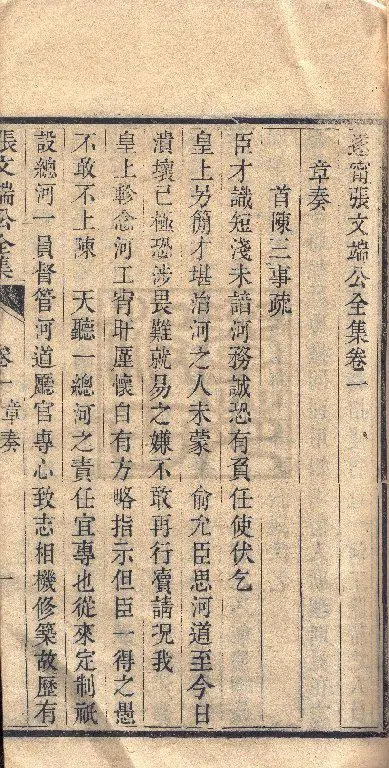 遂甯張文端公全集卷一
章奏
首陳三事疏
臣才識短淺未諳河務誠恐有負任使伏乞
皇上另簡才堪治河之人未蒙 俞允臣思河道至今日
潰壞已極恐涉畏難就易之嫌不敢再行瀆請況我
皇上軫念河工宵旰厪懷自有方略指示但臣一得之愚
不敢不上陳 天聽一總河之責任宜專也從來定制祇
設總河一員督管河道廳官專心致志相機修築故歷有
張文端公全集 卷一 章奏 一